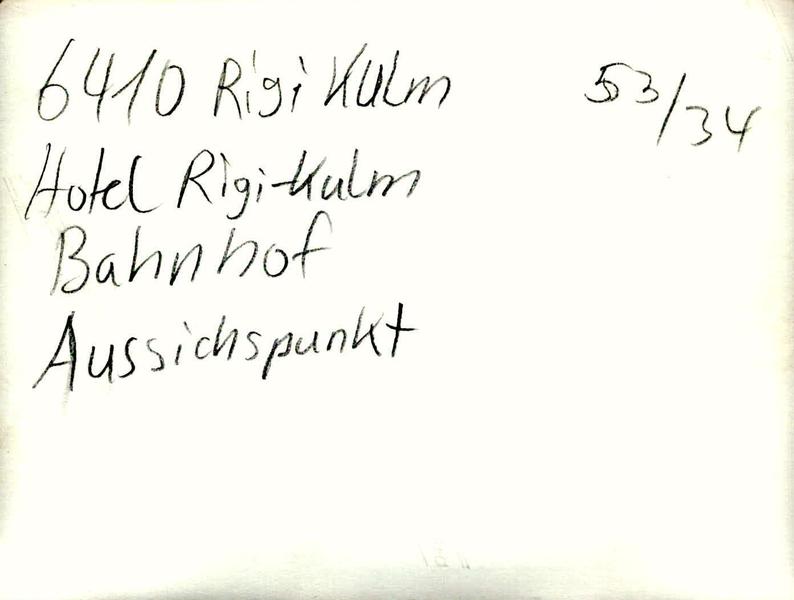 6410 Rigi Kulm 53/34
Hotel Rigi-Kulm
Bahnhof
Aussichspunkt